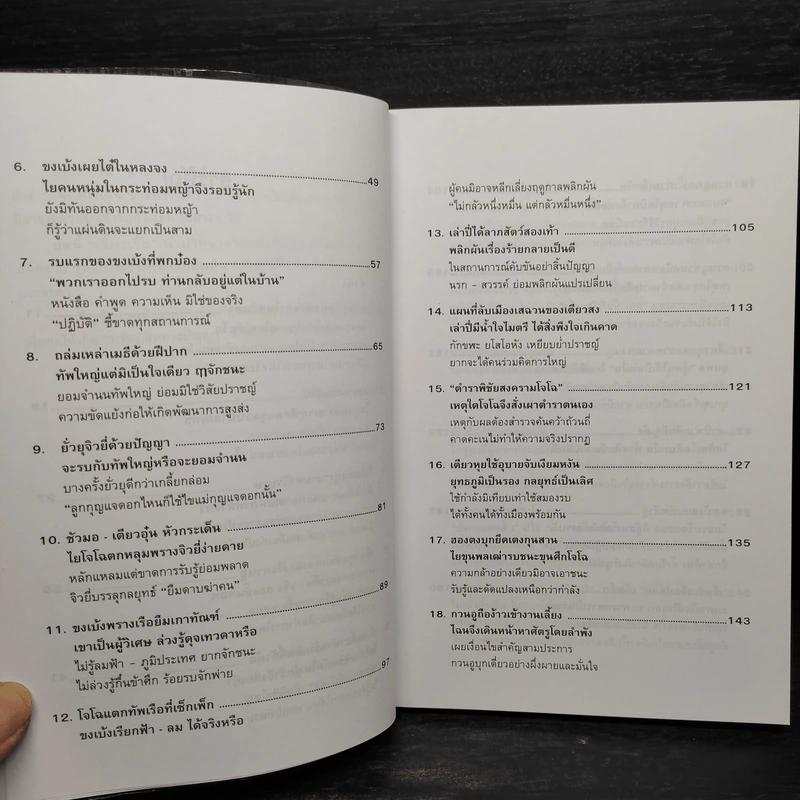 6. ขงเบ้งเผยไต๋ในหลงจง 49
ไยคนหนุ่มในกระท่อมหญ้าจึงรอบรู้นัก
ยังมิทันออกจากกระท่อมหญ้า
ก็รู้ว่าแผ่นดินจะแยกเป็นสาม
7. รบแรกของขงเบ้งที่พกบ๋อง 57
“พวกเราออกไปรบ ท่านกลับอยู่แต่ในบ้าน”
หนังสือ คำพูด ความเห็น มิใช่ของจริง
“ปฏิบัติ” ชี้ขาดทุกสถานการณ์
8. ถล่มเหล่าเมธีด้วยฝีปาก 65
ทัพใหญ่แต่มิเป็นใจเดียว ฤๅจักชนะ
ยอมจำนนทัพใหญ่ ย่อมมิใช่วิสัยปราชญ์
ความขัดแย้งก่อให้เกิดพัฒนาการสูงส่ง
9. ยั่วยุจิวยี่ด้วยปัญญา 73
จะรบกับทัพใหญ่หรือจะยอมจำนน
บางครั้งยั่วยุดีกว่าเกลี้ยกล่อม
“ลูกกุญแจดอกไหนก็ใช้ไขแม่กุญแจดอกนั้น”
10. ชัวมอ - เตียวอุ๋น หัวกระเด็น 81
ไยโจโฉตกหลุมพรางจิวยี่ง่ายดาย
หลักแหลมแต่ขาดการรับรู้ย่อมพลาด
จิวยี่บรรลุกลยุทธ์ “ยืมดาบฆ่าคน”
11. ขงเบ้งพรางเรือยืมเกาทัณฑ์ 89
เขาเป็นผู้วิเศษ ล่วงรู้ดุจเทวดาหรือ
ไม่รู้ลมฟ้า - ภูมิประเทศ ยากจักชนะ
ไม่ล่วงรู้กึ๋นข้าศึก ร้อยรบจักพ่าย
12. โจโฉแตกทัพเรือที่เซ็กเพ็ก 97
ขงเบ้งเรียกฟ้า - ลม ได้จริงหรือ
ผู้คนมิอาจหลีกเลี่ยงฤดูกาลพลิกผัน
“ไม่กลัวหนึ่งหมื่น แต่กลัวหมื่นหนึ่ง”
13. เล่าปี่ได้ลาภสัตว์สองเท้า 105
พลิกผันเรื่องร้ายกลายเป็นดี
ในสถานการณ์คับขันอย่าสิ้นปัญญา
นรก - สวรรค์ ย่อมพลิกผันแปรเปลี่ยน
14. แผนที่ลับเมืองเสฉวนของเตียวสง 113
เล่าปี่มีน้ำใจไมตรี ได้สิ่งพึงใจเกินคาด
กักขฬะ ยโสโอหัง เหยียบย่ำปราชญ์
ยากจะได้คนร่วมคิดการใหญ่
15. “ตำราพิชัยสงครามโจโฉ” 121
เหตุใดโจโฉจึงสั่งเผาตำราตนเอง
เหตุกับผลต้องสำรวจค้นคว้าถ้วนถี่
คาดคะเนไม่ทำให้ความจริงปรากฏ
16. เตียวหุยใช้อุบายจับเงียมหงัน 127
ยุทธภูมิเป็นรอง กลยุทธ์เป็นเลิศ
ใช้กำลังมิเทียบเท่าใช้สมองรบ
ได้ทั้งคนได้ทั้งเมืองพร้อมกัน
17. ฮองตงบุกยึดเตงกุนสาน 135
ไยขุนพลเฒ่ารบชนะขุนศึกโจโฉ
ความกล้าอย่างเดียวมิอาจเอาชนะ
รับรู้และดัดแปลงเหนือกว่ากำลัง
18. กวนอูถือง้าวเข้างานเลี้ยง 143
ไฉนจึงเดินหน้าหาศัตรูโดยลำพัง
เผยเงื่อนไขสำคัญสามประการ
กวนอูบุกเดี่ยวอย่างผึ่งผายและมั่นใจ